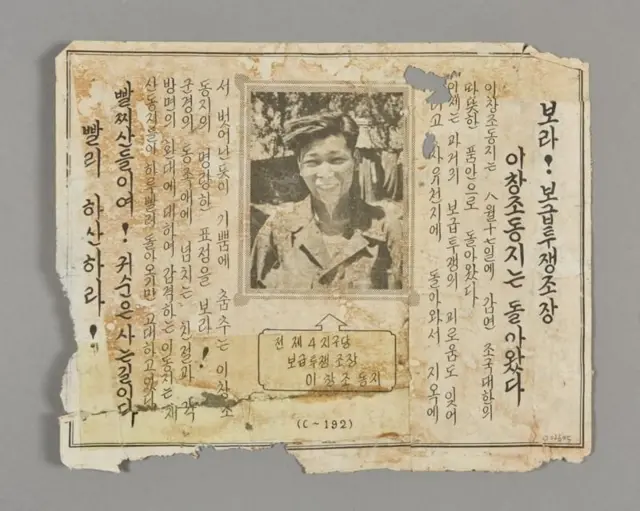 보라! 보급투쟁조장
이창조동지는 돌아왔다
이창조동지는 八월十七일에 감면 조국대한의
따뜻한 품안으로 돌아왔다
이제는 과거의 보급투쟁의 괴로움도 잊어
리고 자유천지에 돌아와서 지옥에
전 제4지구당
보급투쟁조장
이창조 동지
(C~192)
서 벗어난듯이 기쁨에 춤추는 이창조
동지의 명랑한 표정을 보라!
군경의 동족애에 넘치는 친절과 각
방면의 환대에 대하여 감격하는 이동지는 재
산동지들이 하루빨리 돌아오기만 고대하고있다
빨찌산들이여! 귀순은 사는길이다
빨리 하산하라!